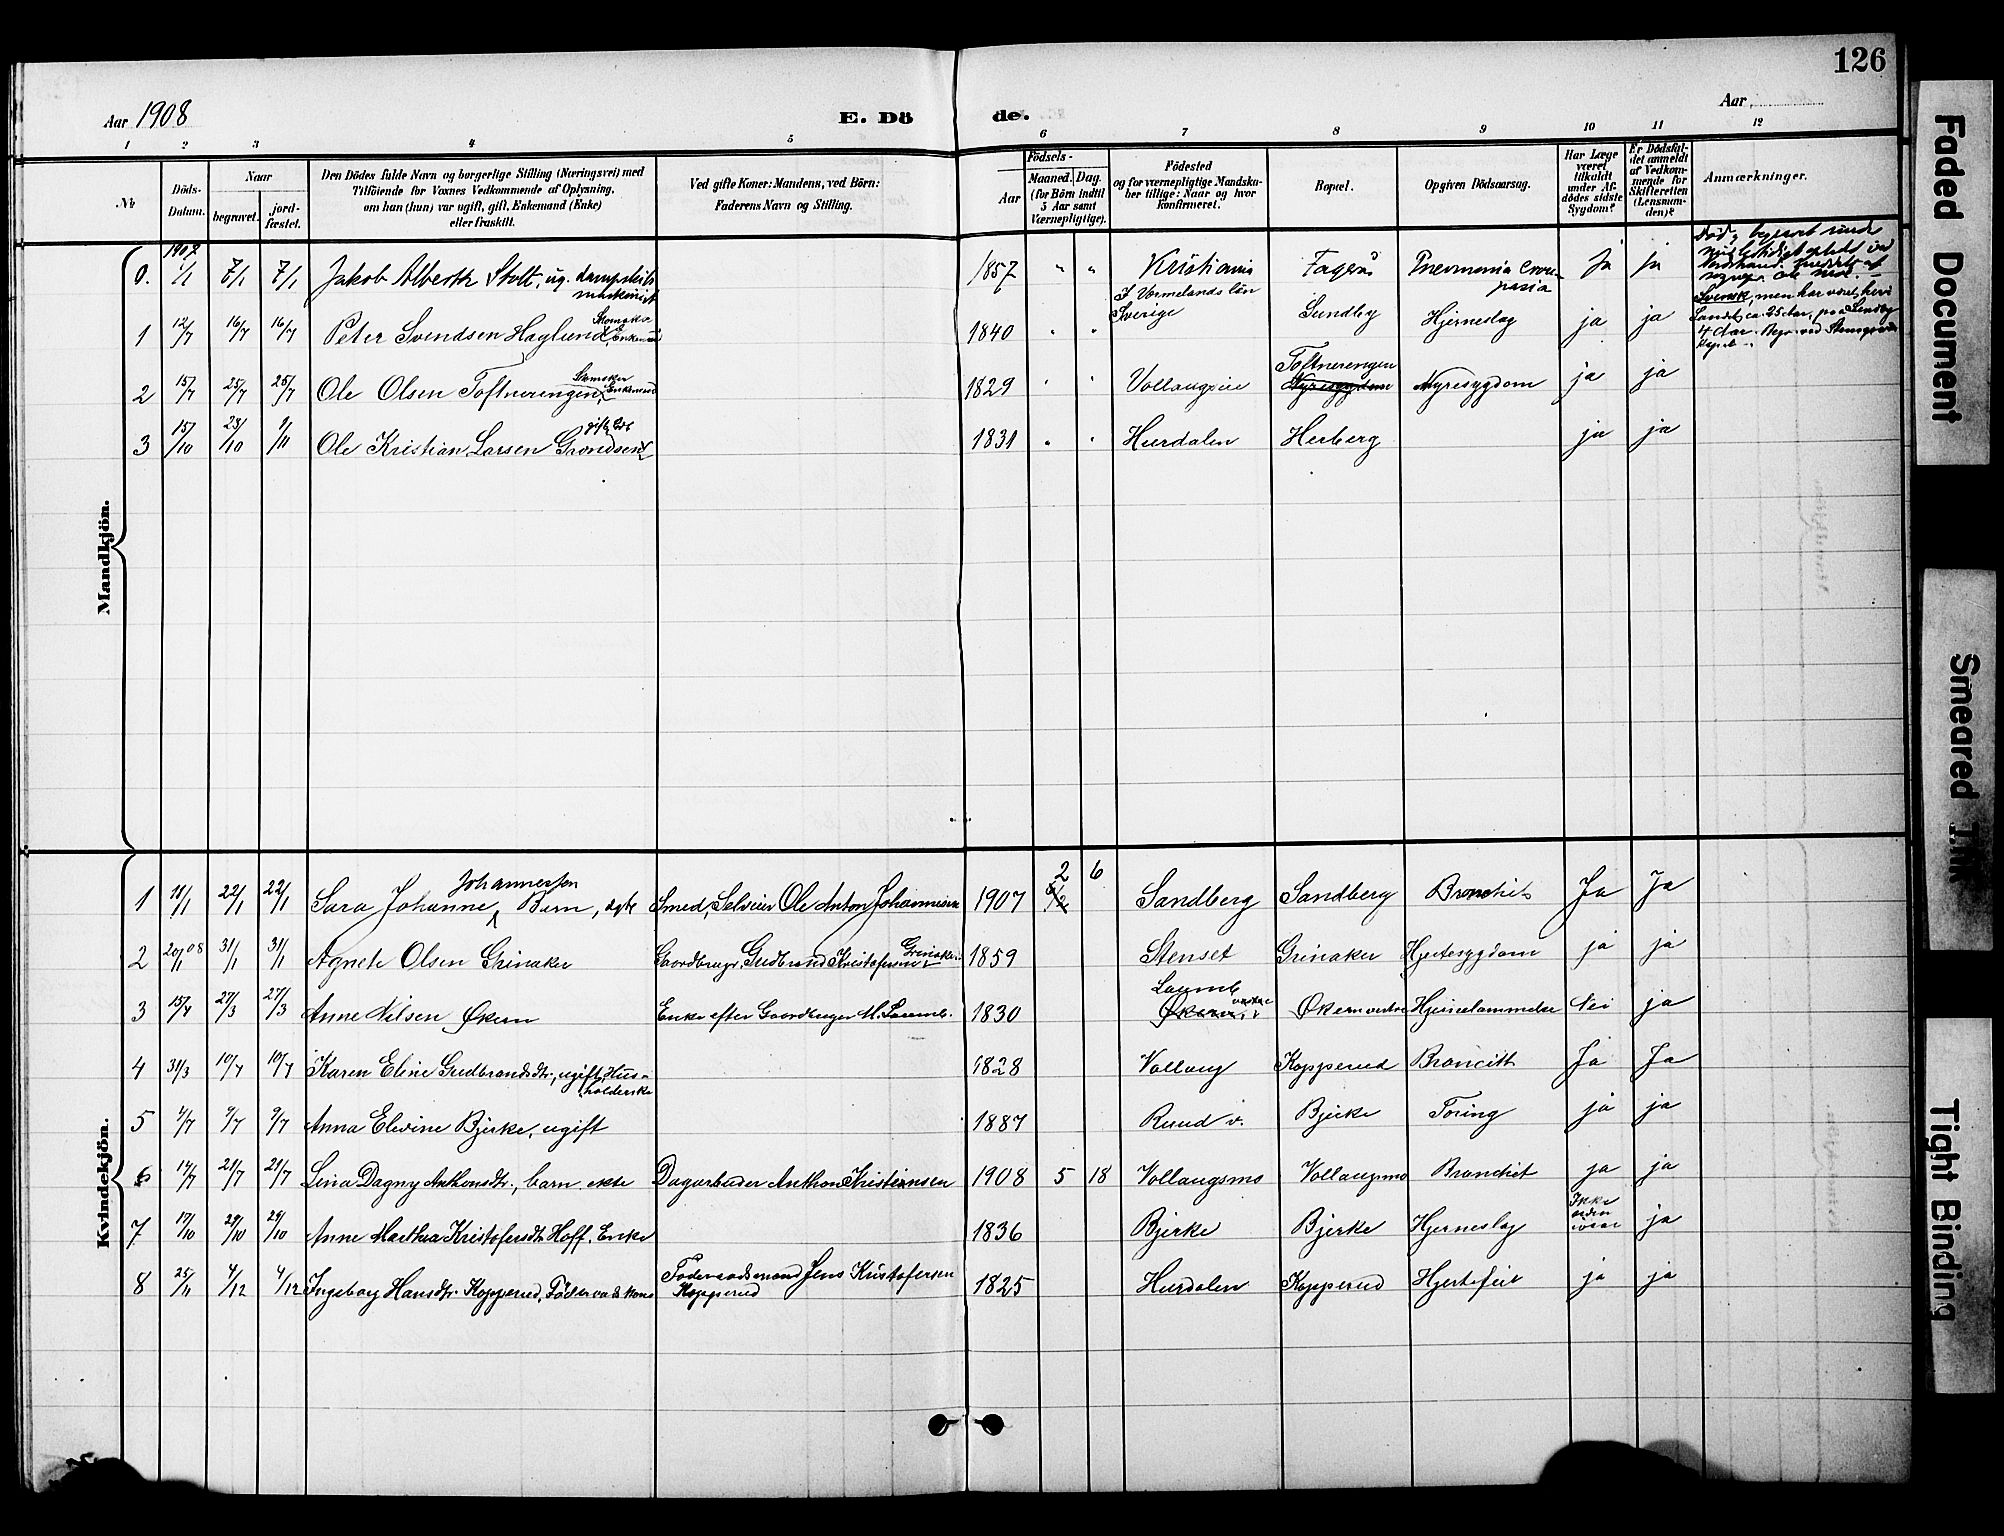 126
Aar 1908
E. Dö de.
Aar
1 2 3 4 5 6 7 8 9 10 11 12
No
Döds-Datum.
Naar
begravet.
jord-fæstet.
Den Dödes fulde Navn og borgerlige Stilling (Næringsvei) med
Tilföiende for Voxnes Vedkommende af Oplysning,
om han (hun) var ugift, gift, Enkemand (Enke)
eller fraskilt.
Ved gifte Koner: Mandens, ved Börn:
Faderens Navn og Stilling.
Födsels-
Aar
Maaned. Dag.
(for Börn indtil
5 Aar samt
Værnepligtige).
Födested
og for værnepligtige Mandska-
ber tillige: Naar og hvor
konfirmeret.
Bopæl.
Opgiven Dödsaarsag.
Har Læge
været
tilkaldt
under Af-
dödes sidste
Sygdom?
Er Dödsfal-
det anmeldt
af Vedkom-
mende for
Skifteretten
(Lensman-
den)?
Anmærkninger.
Mandkjön.
0. 1907 1/1 7/1 7/1 Jakob Alberth Stolt, ug. dampskibs maskinist 1857 " " Kristiania Fagerås Pneumonia crouposia Ja ja
1 12/7 16/7 16/7 Peter Svendsen Haglund, Skomaker Enkemand 1840 " " I Vermelands län Sverige Sundby Hjerneslag ja ja Svensk, men har været her i Landet ca 25 Aar, på Sundby 4 Aar.
2 15/7 25/7 25/7 Ole Olsen Toftnerengen, Skomaker Enkemand 1829 " " Vollaugseie Toftnerengen Nyresygdom Nyresygdom ja ja
3 15/10 23/10 9/11 Ole Kristian Larsen Grøndsend 1831 " " Hurdalen Herberg ja ja
Kvindekjön.
1 11/1 22/1 22/1 Sara Johanne Johannessen Barn, egte Smed, Selveier Ole Anton Johannesen 1907 2 6 Sandberg Sandberg Bronchit Ja Ja
2 20/1 08 31/1 31/1 Agnete Olsen Grinaker Gaardbrugr. Gudbrand Kristofersen Grinaker 1859 Stenset Grinaker Hjertesygdom ja ja
3 15/4 27/3 27/3 Anne Nilsen Økern Enke efter Gaardbruger M. Laumb. 1830 Laumb Økern vestre Økern vestre Hjernelammelse Nei ja
4 31/3 10/4 10/4 Karen Eline Gudbrandsdtr., ugift, Hus-holderske 1828 Vollaug Kopperud Broncitt Ja Ja
5 4/7 9/7 9/7 Anna Elevine Bjerke, ugift 1887 Ruud v. Bjerke Tæring ja ja
6 14/7 21/7 21/7 Lina Dagny Anthonsdtr., barn. ekte Dagarbeider Anthon Kristiansen 1908 5 18 Vollaugsmo Vollaugsmo Bronchit ja ja
7 17/10 29/10 29/10 Anne Marthea Kristofersdtr Hoff. Enke 1836 Bjerke Bjerke Hjerneslag Ikke ja
8 25/11 4/12 4/12 Ingeborg Hansdtr. Kopperud, Föderaadskone Föderaadsmand Jens Kristofersen Kopperud 1825 Hurdalen Kopperud Hjertefeil ja ja
Faded Document
Smeared Ink
Tight Binding